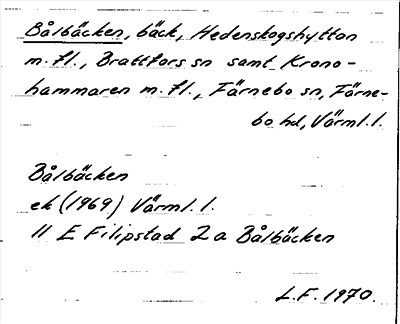 Bålbäcken, bäck, Hedenskogshyttan
m.fl., Brattfors sn samt Krono-
hammaren m.fl., Färnebo sn, Färne-
bo hd, Värml. l.
Bålbäcken
ek (1969) Värml. l.
11 E Filipstad 2 a Bålbäcken
L.F. 1970.